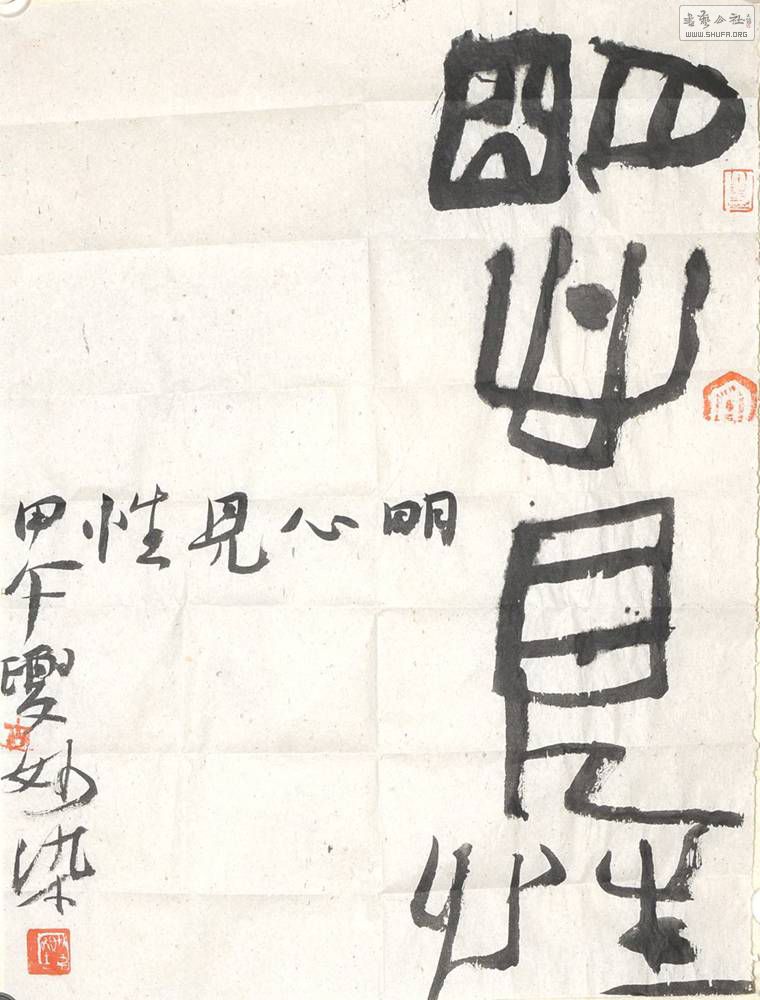 明心見性
明心見性
甲午
妙染
書藝公社
WWW.SHUFA.ORG